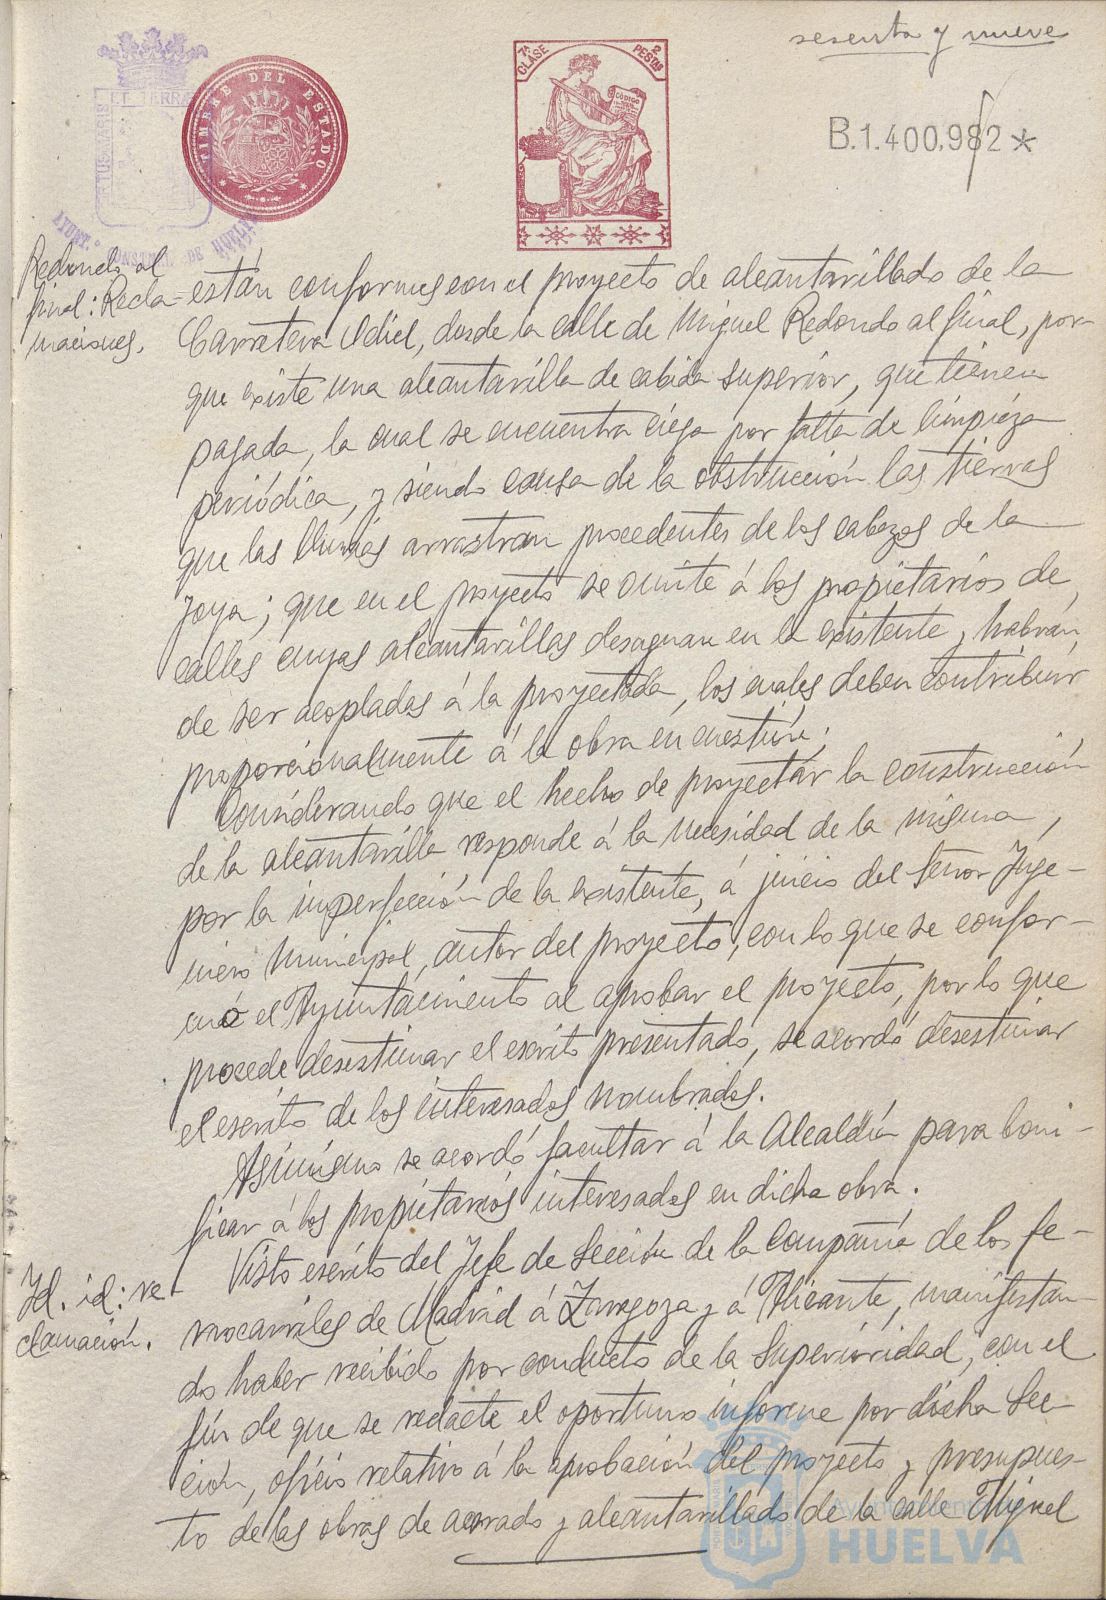 sesenta y nueve
TIMBRE DEL ESTADO
7ª CLASE
2 PESTAS
CODIGO
B.1.400.982 *
AYUNT.º CONSTNAL. DE HUELVA
Redondo al
final: Recla-
maciones.
están conformes con el proyecto de alcantarillado de la
Carretera Odiel, desde la calle de Miguel Redondo al final, por-
que existe una alcantarilla de cabida superior, que tienen
pagada, la cual se encuentra ciega por falta de limpieza
periódica, y siendo causa de la obstrucción las tierras
que las lluvias arrastran procedentes de los cabezos de la
Joya; que en el proyecto se omite á los propietarios de
calles cuyas alcantarillas desaguan en la existente y habrán
de ser acopladas á la proyectada, los cuales deben contribuir
proporcionalmente á la obra en cuestión;
Considerando que el hecho de proyectar la construcción
de la alcantarilla responde á la necesidad de la misma,
por la imperfección de la existente, á juicio del Señor Inge-
niero Municipal, autor del proyecto, con lo que se confor-
mó el Ayuntamiento al aprobar el proyecto, por lo que
procede desestimar el escrito presentado, se acordó desestimar
el escrito de los interesados nombrados.
Asimismo se acordó facultar á la Alcaldía para boni-
ficar á los propietarios interesados en dicha obra.
Id. id: re-
clamación.
Visto escrito del Jefe de Sección de la Compañía de los fe-
rrocarriles de Madrid á Zaragoza y á Alicante, manifestan-
do haber recibido por conducto de la Superioridad, con el
fin de que se redacte el oportuno informe por dicha Sec-
ción, oficio relativo á la aprobación del proyecto y presupues-
to de las obras de acerado y alcantarillado de la calle Miguel
Ayuntamiento de
HUELVA